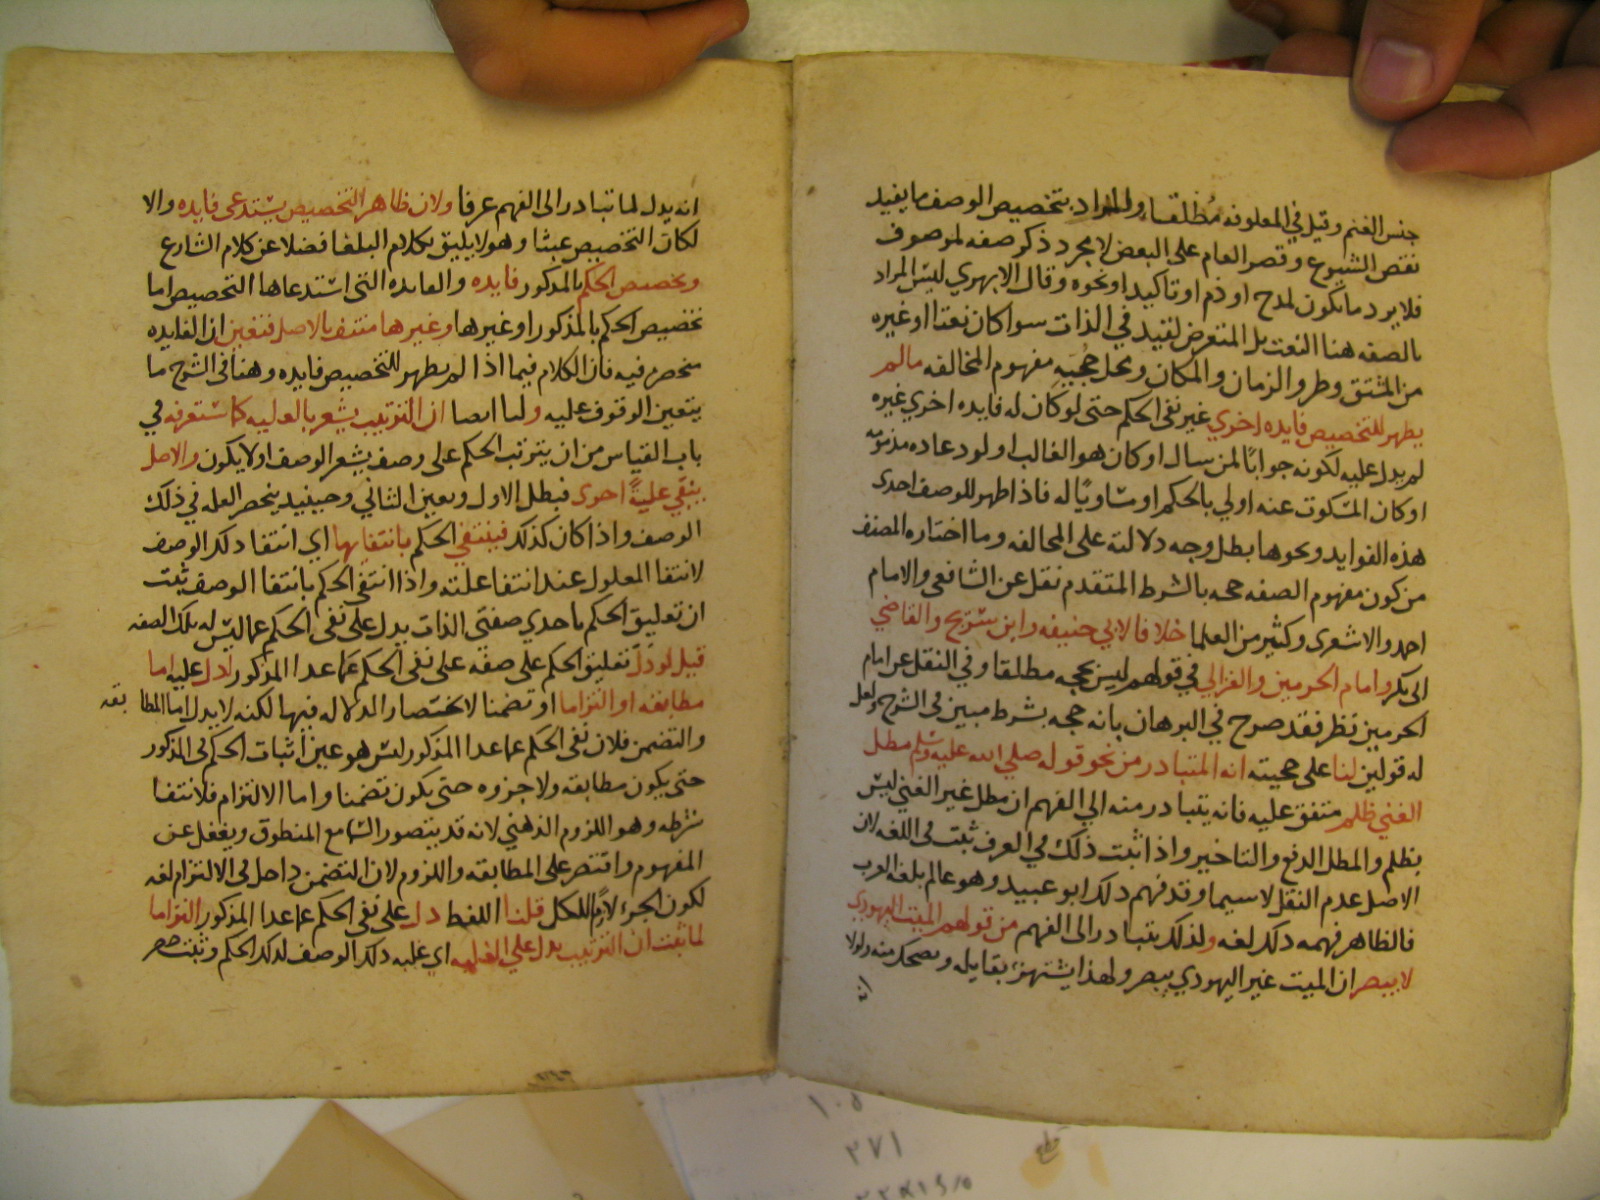 جنس الغنم وقيل في المعلوفه مُطلقا والمراد بتخصيص الوصف ما يفيد
نقص الشيوع وقصر العام على البعض لا مجرد ذكر صفه لموصوف
فلا يرد ما يكون لمدح او ذم او تاكيد او نحوه وقال الابهري ليس المراد
بالصفه هنا النعت بل المتعرض لقيد في الذات سوا كان نعتا او غيره
من المشتق وظرو الزمان والمكان ومحل حُجيه مفهوم المخالفه مالم
يظهر للتخصيص فايده اخري غير نفى الحكم حتى لو كان له فايده اخري غيره
لم يدل عليه لكونه جوابًا لمن سال او كان هو الغالب او لود عاده
او كان المسكوت عنه اولي بالحكم او مساويًا له فاذا ظهر للوصف احدى
هذه الفوايد ونحوها بطل وجه دلالته على المخالفه وما اختاره المصنف
من كون مفهوم الصفه حجه بالشرط المتقدم نقل عن الشافعى والامام
احمد والاشعرى وكثير من العلما خلافا لابي حنيفه وابن سُريج والقاضي
ابى بكر وامام الحرمين والغزالي في قولهم ليس بحجه مطلقا وفي النقل عن امام
الحرمين نظر فقد صرح في البرهان بانه حجه بشرط مبين في الشرح ولعل
له قولين لنا على حجيته انه المتبادر من نحو قوله صلي الله عليه وسلم مطل
الغني ظلم متفق عليه فانه يتبادر منه الي الفهم ان مطل غير الغني ليس
بظلم والمطل الدفع والتاخير واذا ثبت ذلك في العرف ثبت في اللغه لان
الاصل عدم النقل لاسيما وقد فهم ذلك ابو عبيد وهو عالم بلغه العرب
فالظاهر فهمه ذلك لغه ولذلك يتبادر الى الفهم من قولهم الميت اليهودي
لا يبصر ان الميت غير اليهودي يبصر ولهذا يستهزء بقايله ويضحك منه ولولا
انه يدل لما تبادر الى الفهم عرفا ولان ظاهر التخصيص يستدعى فايده والا
لكان التخصيص عبثا وهو لا يليق بكلام البلغا فضلا عن كلام الشارع
وتخصيص الحكم بالمذكور فايده والفايده التى استدعاها التخصيص اما
تخصيص الحكم بالمذكور او غيرها وغيرها منتف بالاصل فتعين ان الفايده
منحصره فيه فان الكلام فيما اذا لم يظهر للتخصيص فايده وهنا في الشرح ما
يتعين الوقوف عليه ولنا ايضا ان الترتيب يشعر بالعليه كما ستعرفه في
باب القياس من ان يترتب الحكم على وصف يشعر الوصف او لا يكون والاصل
ينفي عليةً اخرى فبطل الاول وتعين الثاني وحينيد ينحصر العله في ذلك
الوصف واذا كان كذلك فينتفي الحكم بانتفايها اي انتفا ذلك الوصف
لانتفا المعلول عند انتفا علته واذا انتفى الحكم بانتفا الوصف ثبت
ان تعليق الحكم باحدي صفتى الذات يدل على نفى الحكم عما ليس له تلك الصفه
قيل لو دلّ تعليق الحكم على صفه على نفى الحكم عما عدا المذكور لدل عليه اما
مطابقه او التزاما او تضمنا لانحتصار الدلاله فيها لكنه لا يدل اما المطابقه
والتضمن فلان نفى الحكم عما عدا المذكور ليس هو عين اثبات الحكم في المذكور
حتى يكون مطابقه ولا جزوه حتى يكون تضمنا واما الالتزام فلانتفا
شرطه وهو اللزوم الذهني لانه قد يتصور السامع المنطوق ويغفل عن
المفهوم واقتصر على المطابقه واللزوم لان التضمن داخل في الالتزام لغه
لكون الجزء لازم للكل قلنا اللفظ دل على نفى الحكم عما عدا المذكور التزاما
لما ثبت ان الترتيب يدل علي العليه اي عليه ذلك الوصف لذلك الحكم وثبت
١٠٥
٢٧١